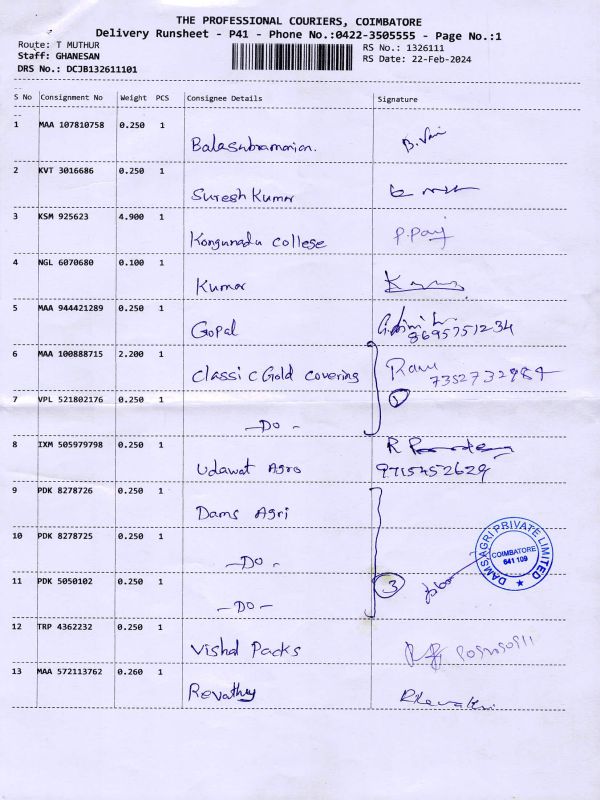 THE PROFESSIONAL COURIERS, COIMBATORE
Delivery Runsheet - P41 - Phone No.:0422-3505555 - Page No.:1
Route: T MUTHUR RS No.: 1326111
Staff: GHANESAN RS Date: 22-Feb-2024
DRS No.: DCJB132611101
S No Consignment No Weight PCS Consignee Details Signature
1 MAA 107810758 0.250 1 Balasubramanian.
2 KVT 3016686 0.250 1 Suresh Kumar
3 KSM 925623 4.900 1 Kongunadu College
4 NGL 6070680 0.100 1 Kumar
5 MAA 944421289 0.250 1 Gopal 8695751234
6 MAA 100888715 2.200 1 Classic Gold Covering Ravi 7352732984
7 VPL 521802176 0.250 1 -Do-
8 IXM 505979798 0.250 1 Udawat Agro 9715452629
9 PDK 8278726 0.250 1 Dams Agri
10 PDK 8278725 0.250 1 -Do-
11 PDK 5050102 0.250 1 -Do- 3
DAMS AGRI PRIVATE LIMITED
COIMBATORE
641 109
12 TRP 4362232 0.250 1 Vishal Packs
13 MAA 572113762 0.260 1 Revathy